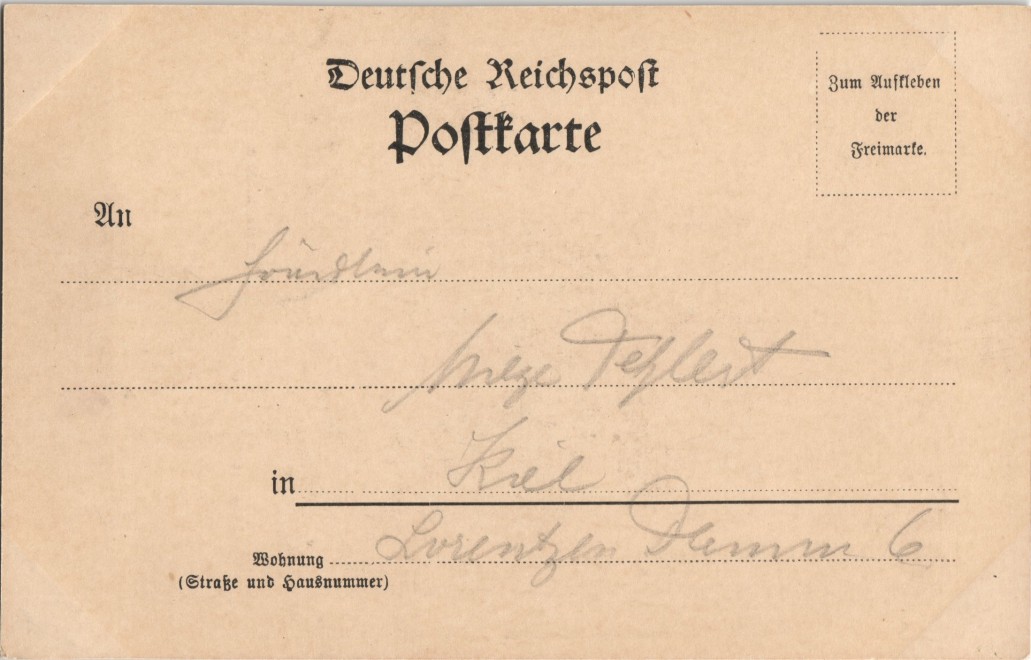 Deutsche Reichspost
Postkarte
Zum Aufkleben
der
Freimarke.
An
Fräulein
in Kiel
Wohnung Lorentzen Damm 6
(Straße und Hausnummer)